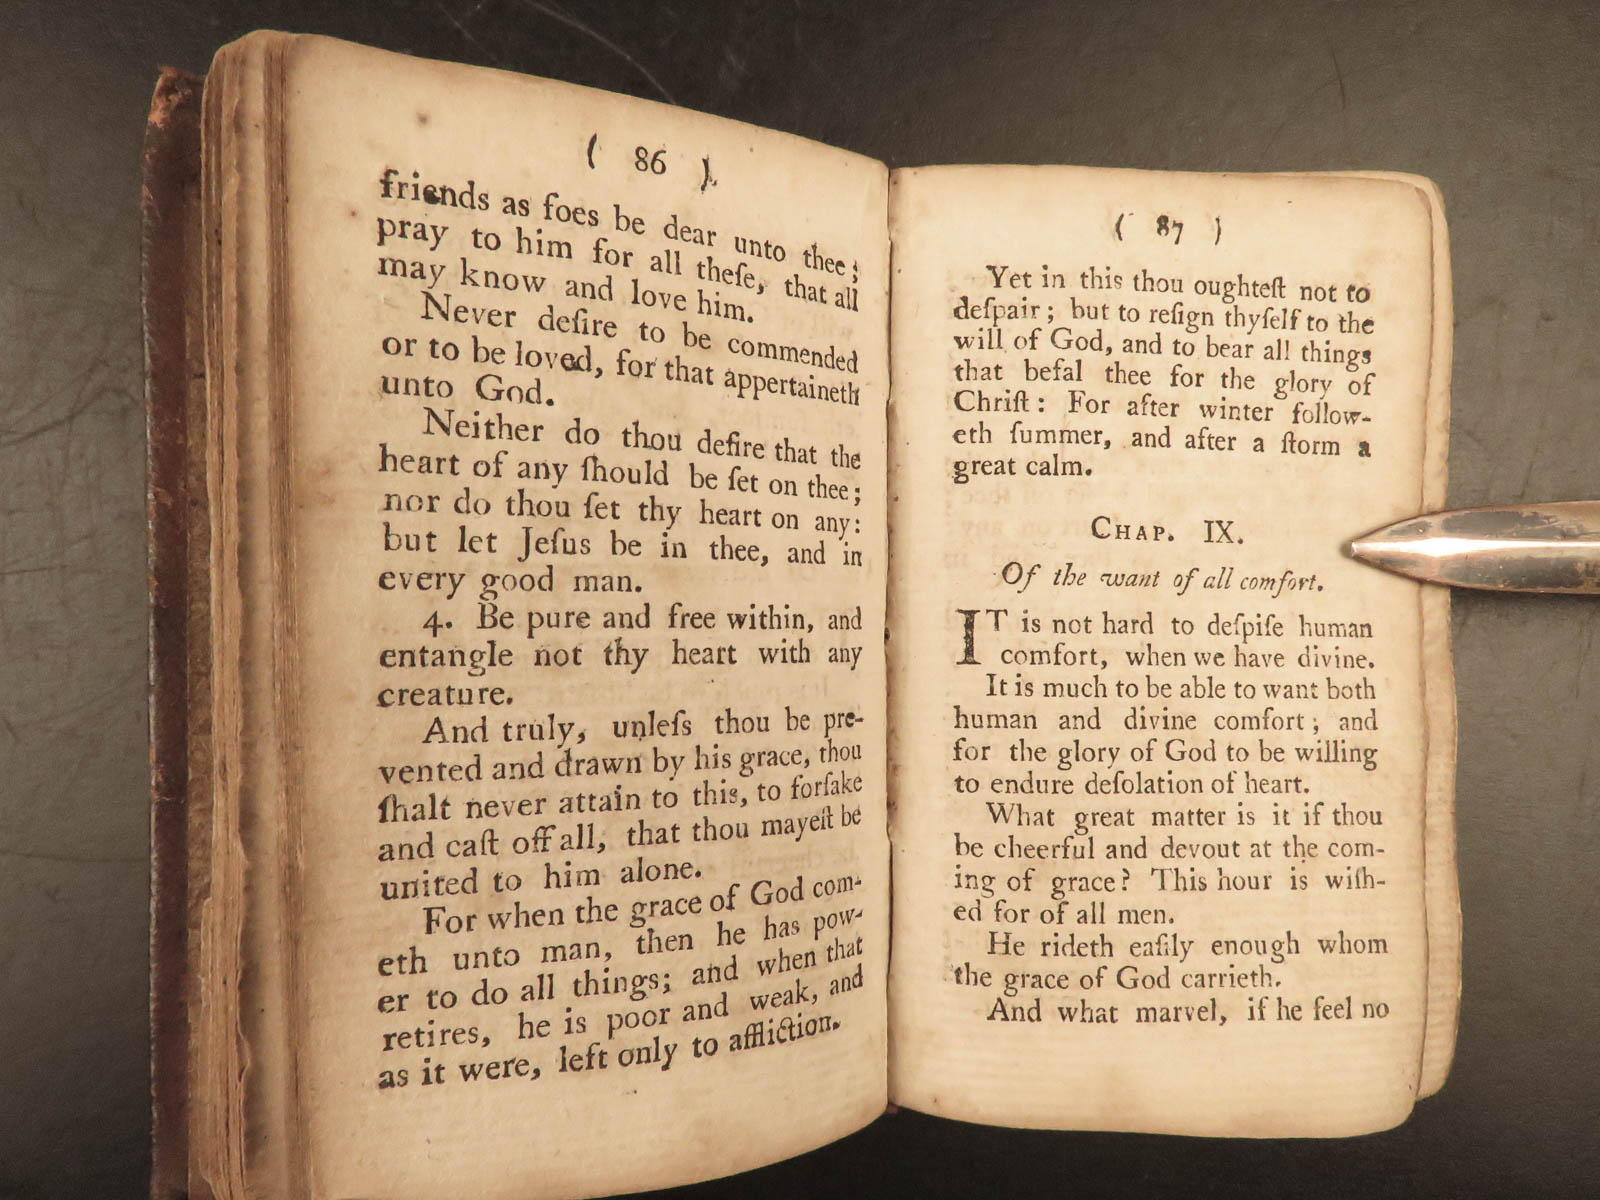 ( 86 )
friends as foes be dear unto thee;
pray to him for all theſe, that all
may know and love him.
Never deſire to be commended
or to be loved, for that appertaineth
unto God.
Neither do thou deſire that the
heart of any ſhould be ſet on thee;
nor do thou ſet thy heart on any:
but let Jeſus be in thee, and in
every good man.
4. Be pure and free within, and
entangle not thy heart with any
creature.
And truly, unleſs thou be pre-
vented and drawn by his grace, thou
ſhalt never attain to this, to forſake
and caſt off all, that thou mayeſt be
united to him alone.
For when the grace of God com-
eth unto man, then he has pow-
er to do all things; and when that
retires, he is poor and weak, and
as it were, left only to affliction.
( 87 )
Yet in this thou oughteſt not to
deſpair; but to reſign thyſelf to the
will of God, and to bear all things
that befal thee for the glory of
Chriſt: For after winter follow-
eth ſummer, and after a ſtorm a
great calm.
CHAP. IX.
Of the want of all comfort.
IT is not hard to deſpiſe human
comfort, when we have divine.
It is much to be able to want both
human and divine comfort; and
for the glory of God to be willing
to endure deſolation of heart.
What great matter is it if thou
be cheerful and devout at the com-
ing of grace? This hour is wiſh-
ed for of all men.
He rideth eaſily enough whom
the grace of God carrieth.
And what marvel, if he feel no